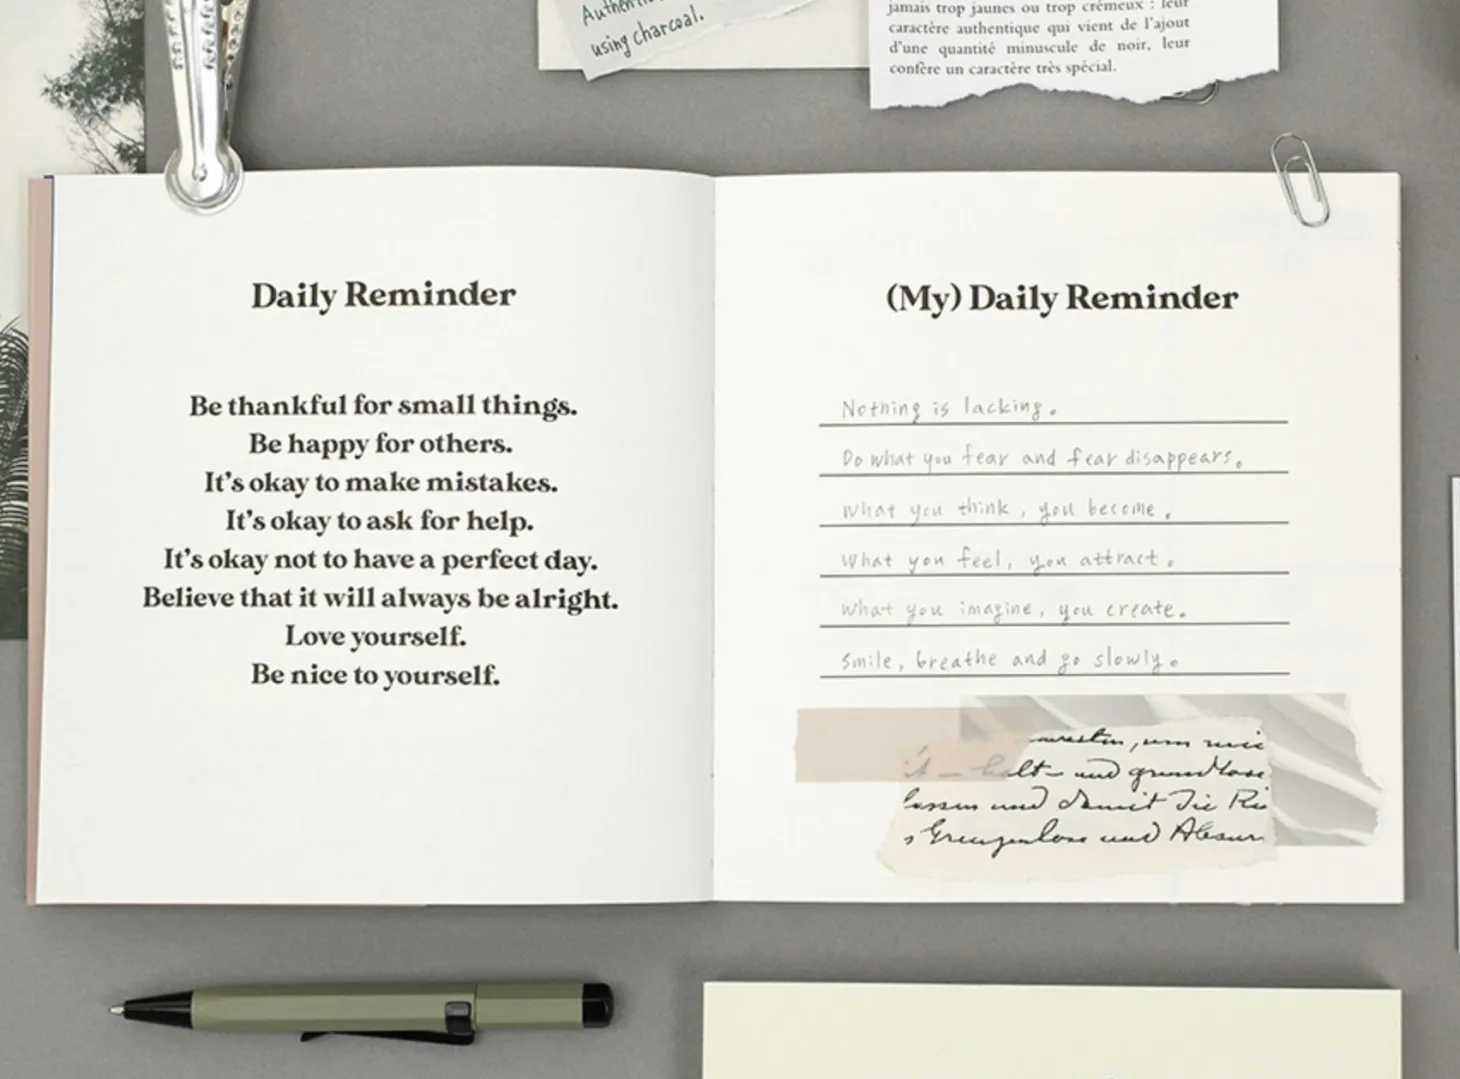 using charcoal.
jamais trop jaunes ou trop crémeux : leur
caractère authentique qui vient de l'ajout
d'une quantité minuscule de noir, leur
confère un caractère très spécial.
Daily Reminder
Be thankful for small things.
Be happy for others.
It's okay to make mistakes.
It's okay to ask for help.
It's okay not to have a perfect day.
Believe that it will always be alright.
Love yourself.
Be nice to yourself.
(My) Daily Reminder
Nothing is lacking.
Do what you fear and fear disappears.
What you think, you become.
What you feel, you attract.
What you imagine, you create.
Smile, breathe and go slowly.
und
lassen und damit Die
und